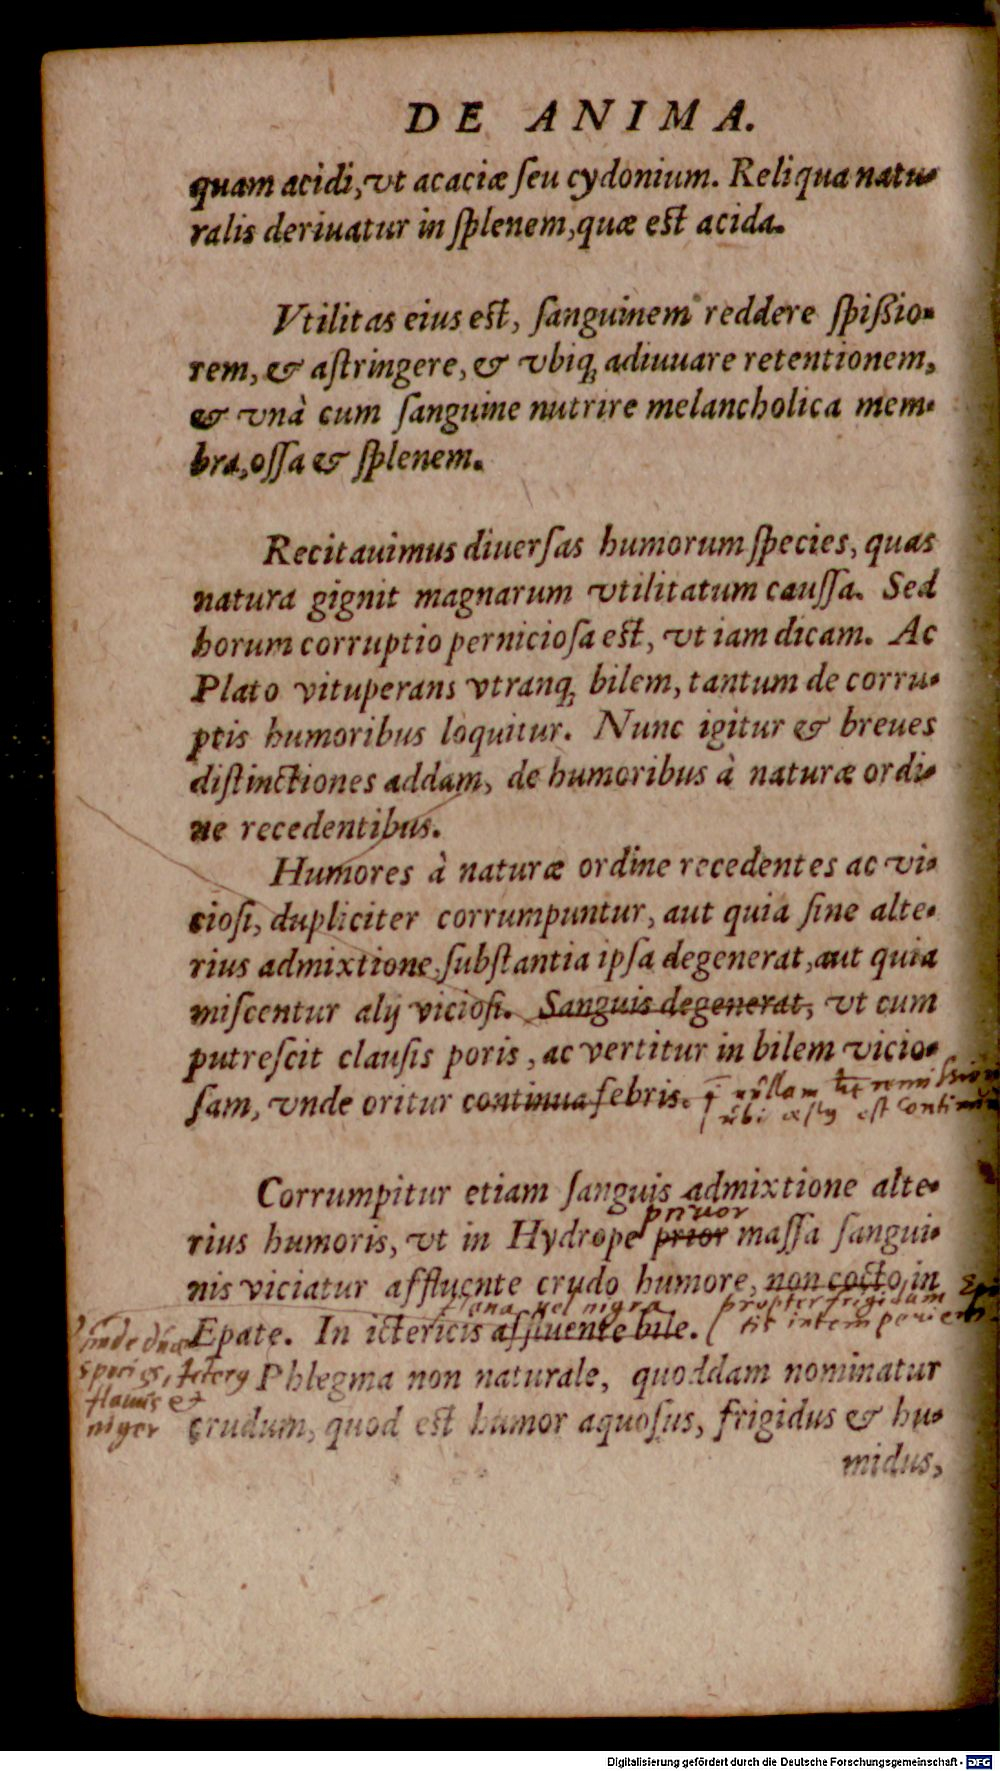 DE ANIMA.
quam acidi, vt acaciæ ſeu cydonium. Reliqua natu-
ralis deriuatur in ſplenem, quæ est acida.
Vtilitas eius est, ſanguinem reddere ſpißio-
rem, & aſtringere, & vbiq; adiuuare retentionem,
& vnà cum ſanguine nutrire melancholica mem-
bra, oſſa & ſplenem.
Recitauimus diuerſas humorum ſpecies, quas
natura gignit magnarum vtilitatum cauſſa. Sed
horum corruptio pernicioſa est, vt iam dicam. Ac
Plato vituperans vtranq; bilem, tantum de corru-
ptis humoribus loquitur. Nunc igitur & breues
diſtinctiones addam, de humoribus à naturæ ordi-
ne recedentibus.
Humores à naturæ ordine recedentes ac vi-
cioſi, dupliciter corrumpuntur, aut quia ſine alte-
rius admixtione, ſubſtantia ipſa degenerat, aut quia
miſcentur alij vicioſi. Sanguis degenerat, vt cum
putreſcit clauſis poris, ac vertitur in bilem vicio-
ſam, vnde oritur continua febris. nullam remiſſion
ubi est contin
Corrumpitur etiam ſanguis admixtione alte-
privor
rius humoris, vt in Hydrope prior maſſa ſangui-
nis viciatur affluente crudo humore, non cocto in
flaua vel nigra propter frigidam
Epate. In ictericis affluente bile. sit intemperiem
unde duæ
species, Ictery
flauus et
niger
Phlegma non naturale, quoddam nominatur
crudum, quod est humor aquoſus, frigidus & hu-
midus,
Digitalisierung gefördert durch die Deutsche Forschungsgemeinschaft - DFG